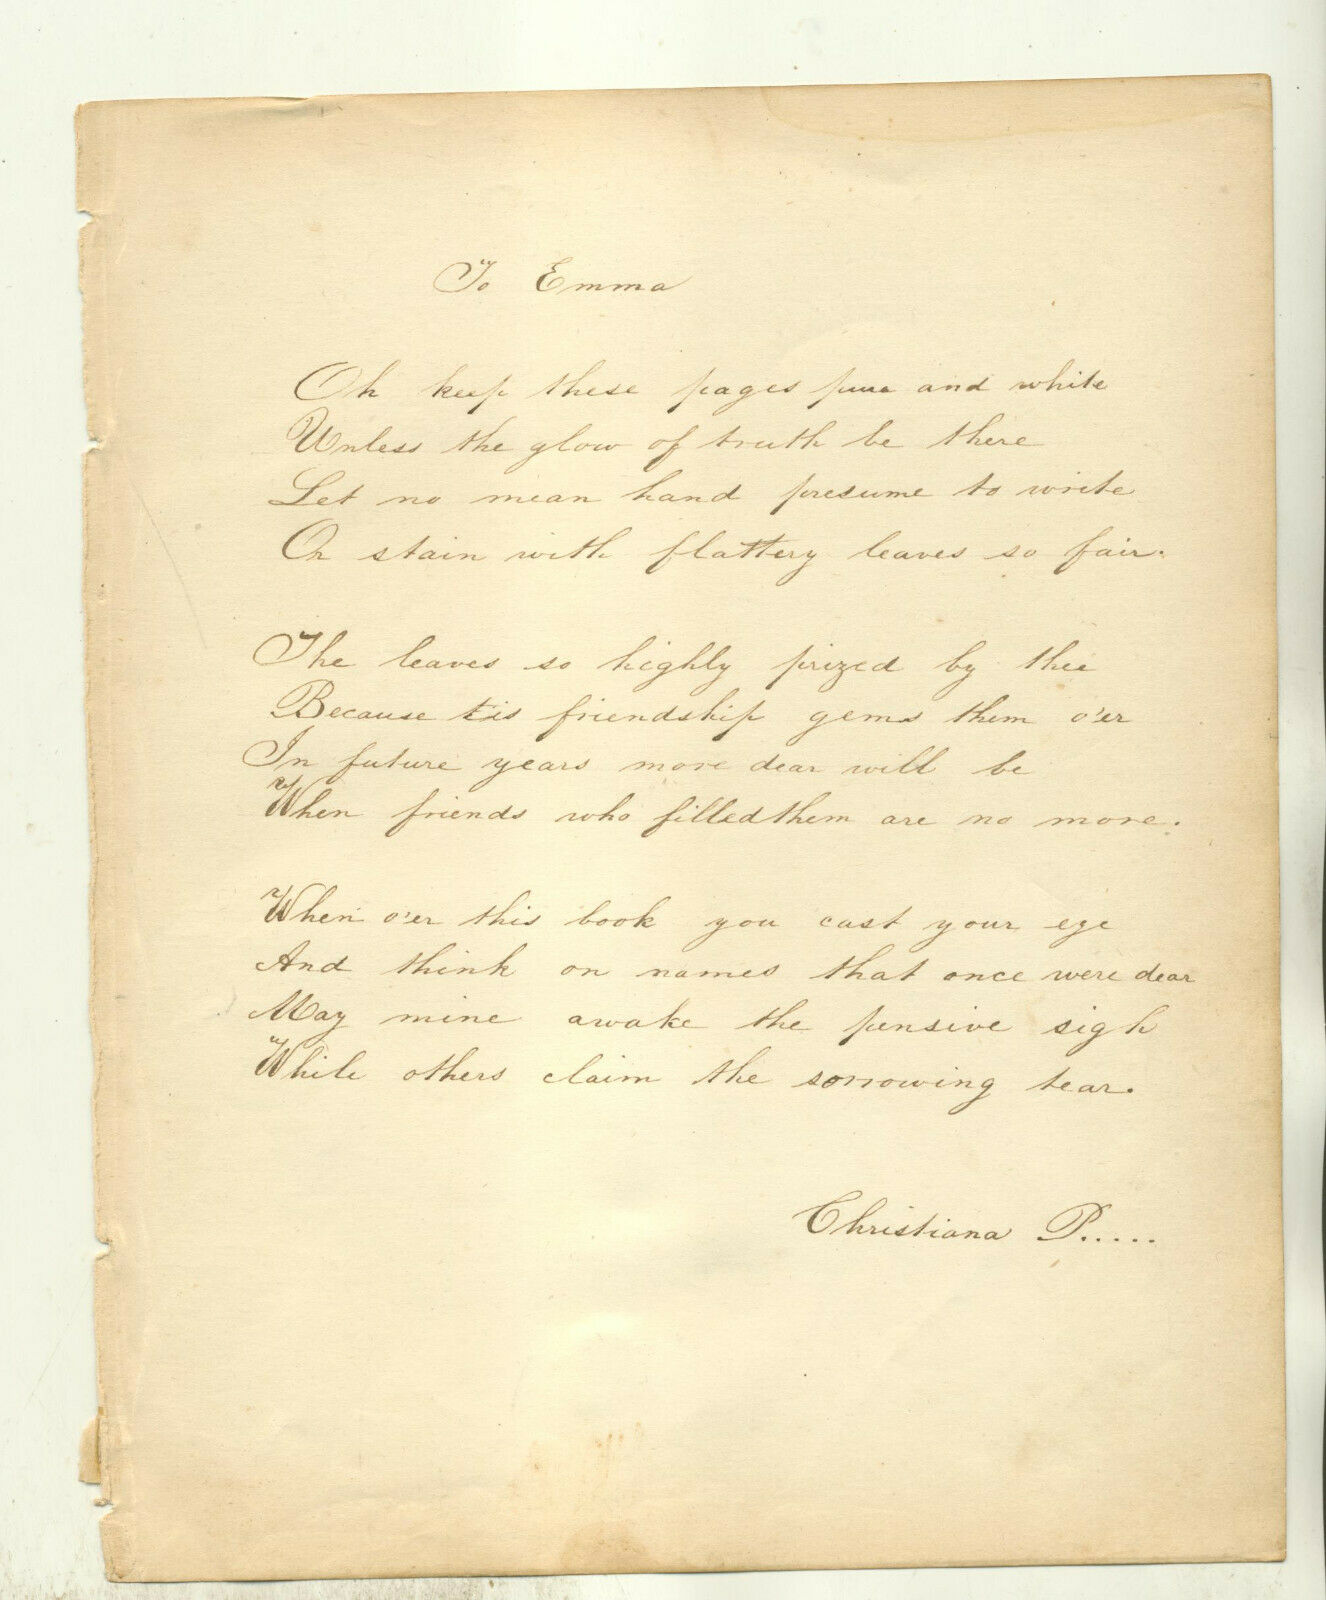 To Emma
Oh keep these pages pure and white
Unless the glow of truth be there
Let no mean hand presume to write
Or stain with flattery leaves so fair.
The leaves so highly prized by thee
Because tis friendship gems them o'er
In future years more dear will be
When friends who filled them are no more.
When o'er this book you cast your eye
And think on names that once were dear
May mine awake the pensive sigh
While others claim the sorrowing tear.
Christiana P.....